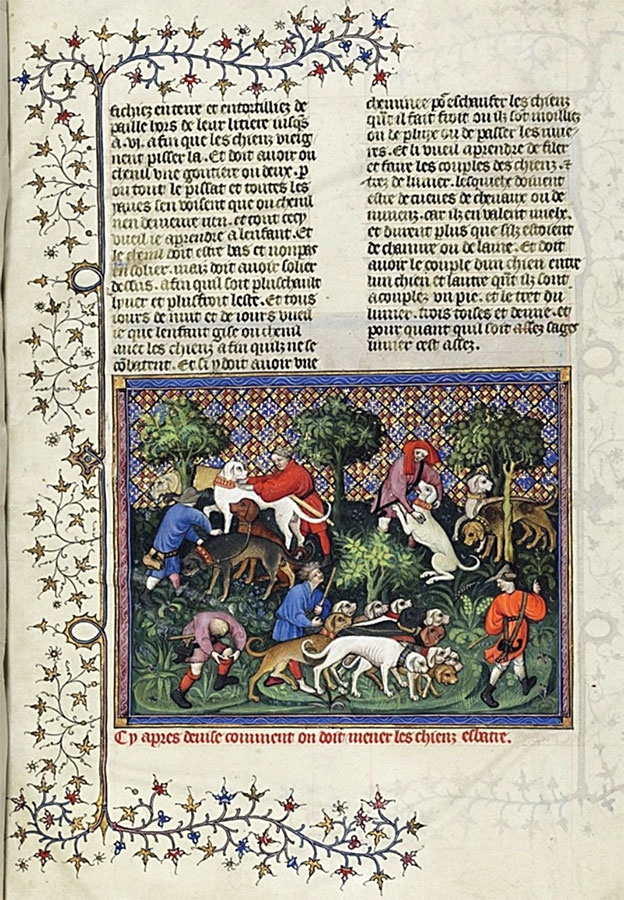 fichiez en terre et entortilliez de
paille hors de leur litiere iusqs
a .vi. a fin que les chienz vieig
nent pisser la. Et doit auoir ou
chenil vne goutiere ou deux. p
ou tout le pissat et toutes les
yaues sen voisent que ou chenil
nen demeure rien. et tout cecy
vueil ie aprendre a lenfant. Et
le chenil doit estre bas et nonpas
en solier. maiz doit auoir solier
dessus. a fin quil soit pluschault
lyuer et plusfroit leste. Et tous
iours de nuit et de iours vueil
ie que lenfant gise ou chenil
auec les chienz a fin quilz ne se
cōbatent. Et si y doit auoir vne
cheminee po eschaufer les chienz
qut il fait froit ou ilz sōt moilliez
ou de pluye ou de passer les riuie
res. Et li vueil aprendre de filer
et faire les couples des chienz. et
trez de limier. lesquelx doiuent
estre de cueues de cheuaux ou de
iumenz. car ilz en valent mielx.
et durent plus que silz estoient
de chanure ou de laine. Et doit
auoir le couple dun chien entre
lun chien et lautre qut ilz sont
acouplez vn pie. et le tret du
limier. trois toises et demie. et
pour quant quil soit assez sages
limier cest assez.
Cy apres deuise comment on doit mener les chienz esbatre.